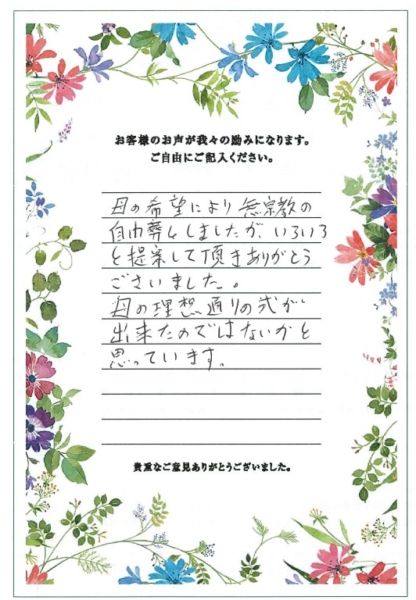 お客様のお声が我々の励みになります。
ご自由にご記入ください。
母の希望により無宗教の
自由葬にしましたが、いろいろ
と提案して頂きありがとう
ございました。
母の理想通りの式が
出来たのではないかと
思っています。
貴重なご意見ありがとうございました。